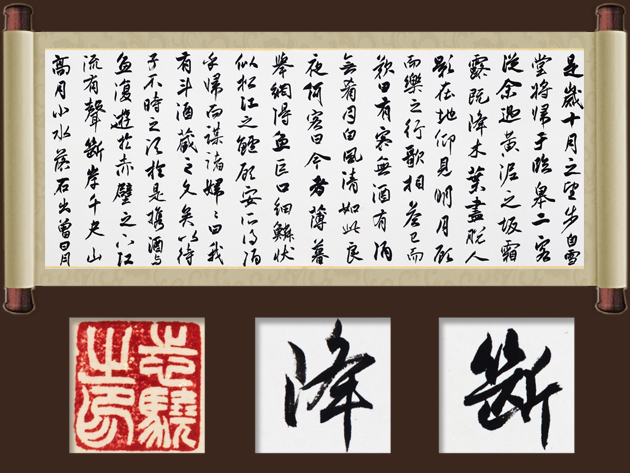 是歲十月之望步自雪
堂將歸于臨皋二客
從余過黃泥之坂霜
露既降木葉盡脫人
影在地仰見明月顧
而樂之行歌相答已而
歎曰有客無酒有酒
無肴月白風清如此良
夜何客曰今者薄暮
舉網得魚巨口細鱗狀
似松江之鱸顧安所得酒
乎歸而謀諸婦々曰我
有斗酒藏之久矣以待
子不時之須於是攜酒與
魚復遊於赤壁之下江
流有聲斷岸千尺山
高月小水落石出曾日月
志驍之印
降
斷